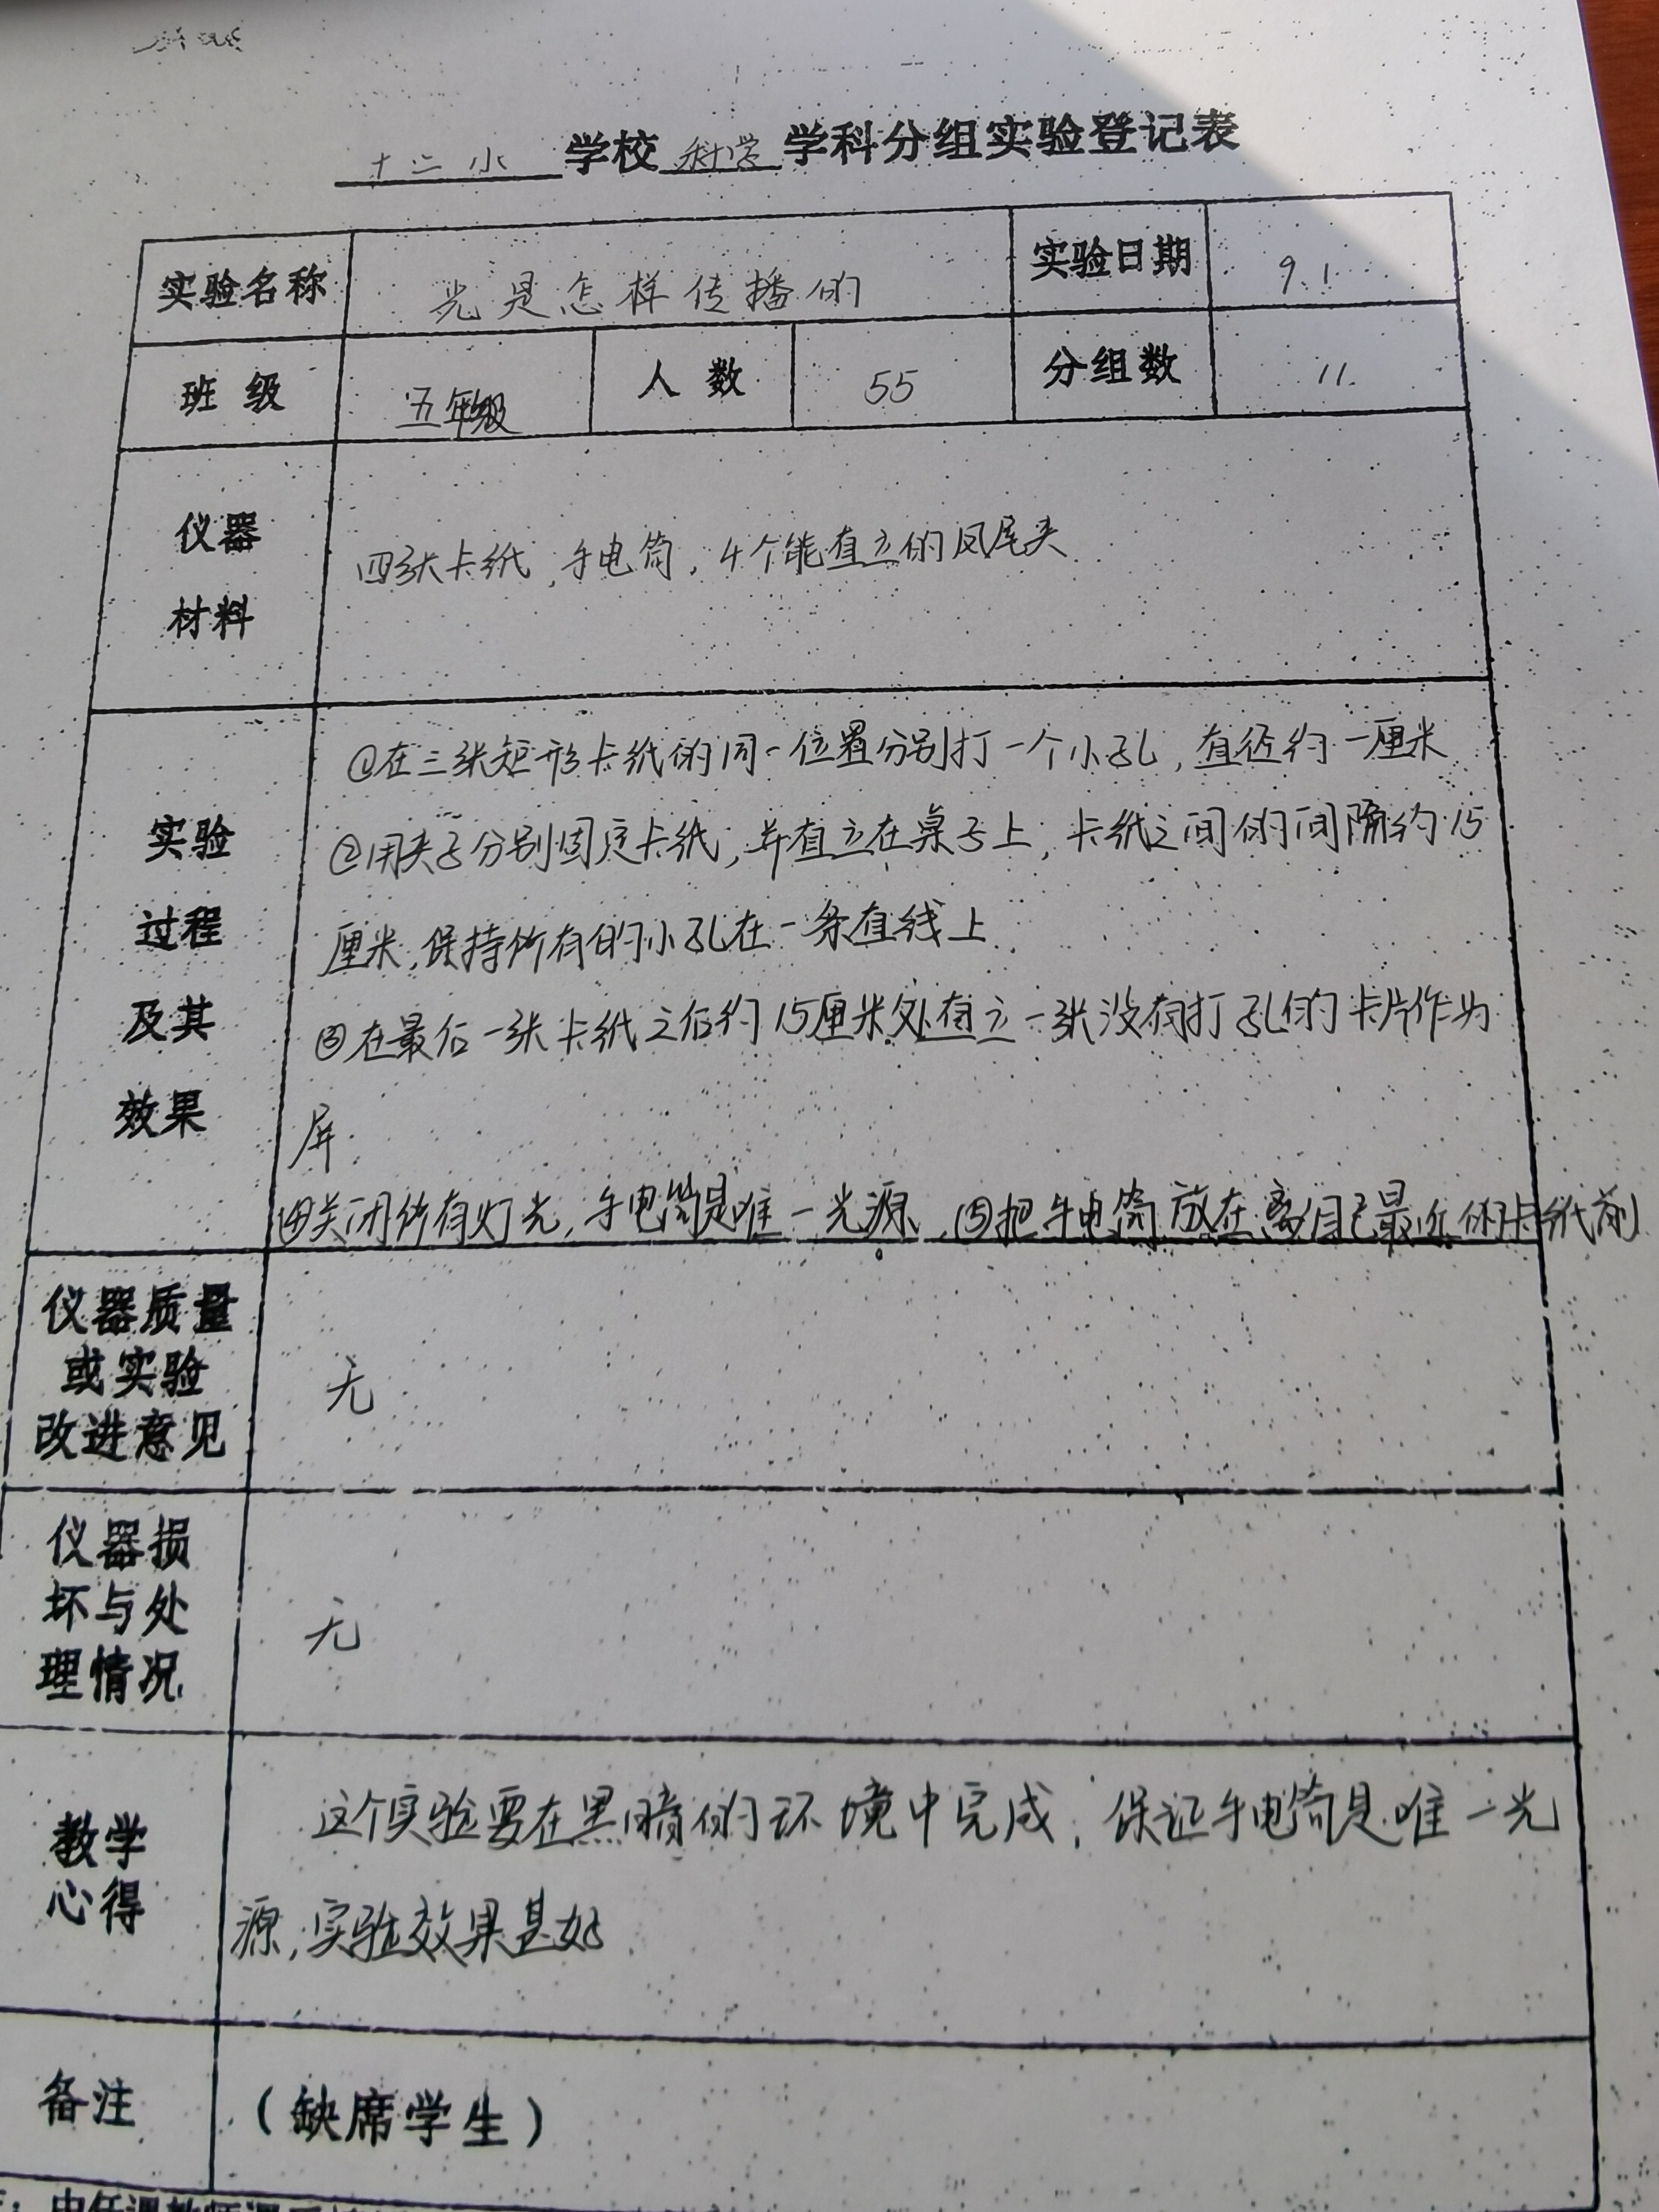 十二小 学校 科学 学科分组实验登记表
实验名称 光是怎样传播的 实验日期 9.1
班级 五年级 人数 55 分组数 11
仪器
材料
四张卡纸,手电筒,4个能直立的凤尾夹
实验
过程
及其
效果
①在三张矩形卡纸的同一位置分别打一个小孔,直径约一厘米
②用夹子分别固定卡纸,并直立在桌子上,卡纸之间的间隔约15
厘米,保持所有的小孔在一条直线上
③在最后一张卡纸之后约15厘米处直立一张没有打孔的卡片作为
屏.
④关闭所有灯光,手电筒是唯一光源。⑤把手电筒放在离自己最近的卡纸前
仪器质量
或实验
改进意见
无
仪器损
坏与处
理情况
无
教学
心得
这个实验要在黑暗的环境中完成,保证手电筒是唯一光
源,实验效果甚好
备注 (缺席学生)